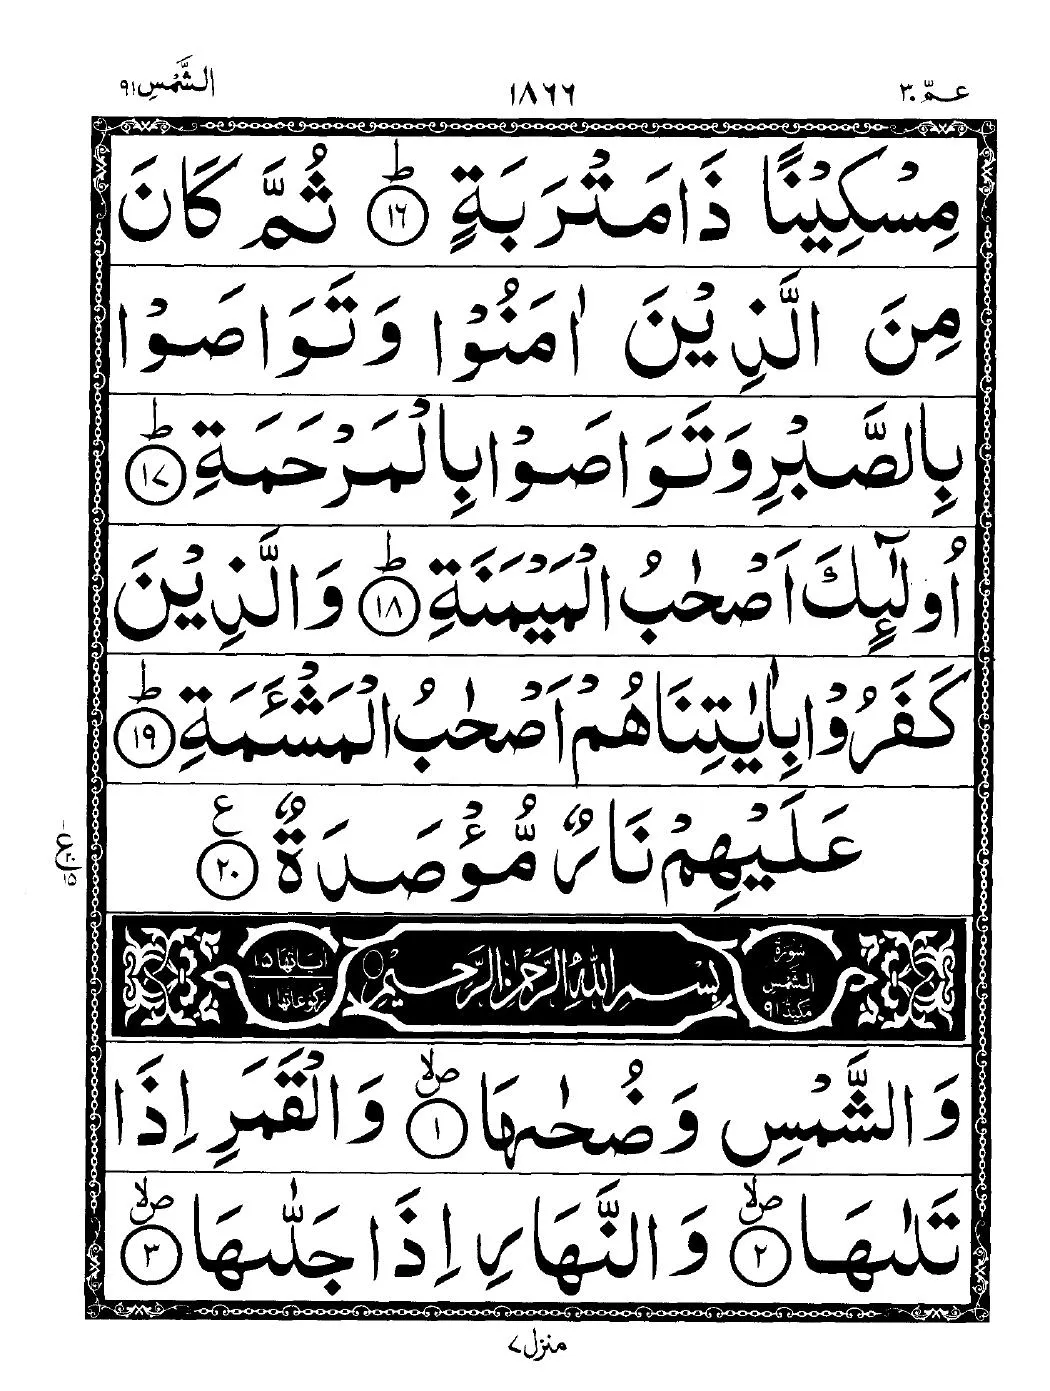 عـمّ ٣٠
١٨٦٦
الشَّمْسِ ٩١
مِسْكِيْنًا ذَا مَتْرَبَةٍ ؕ ﴿١٦﴾ ثُمَّ كَانَ
مِنَ الَّذِيْنَ اٰمَنُوْا وَتَوَاصَوْا
بِالصَّبْرِ وَتَوَاصَوْا بِالْمَرْحَمَةِ ؕ ﴿١٧﴾
اُولٰٓئِكَ اَصْحٰبُ الْمَيْمَنَةِ ؕ ﴿١٨﴾ وَالَّذِيْنَ
كَفَرُوْا بِاٰيٰتِنَا هُمْ اَصْحٰبُ الْمَشْـَٔمَةِ ؕ ﴿١٩﴾
عَلَيْهِمْ نَارٌ مُّؤْصَدَةٌ ﴿٢٠﴾ ع
سورة الشمس مكية ٩١
بِسْمِ اللهِ الرَّحْمٰنِ الرَّحِيْمِ
اٰياتها ١٥
ركوعاتها ١
وَالشَّمْسِ وَضُحٰىهَا ﴿١﴾ صلا وَالْقَمَرِ اِذَا
تَلٰىهَا ﴿٢﴾ صلا وَالنَّهَارِ اِذَا جَلّٰىهَا ﴿٣﴾ صلا
منزل ٧